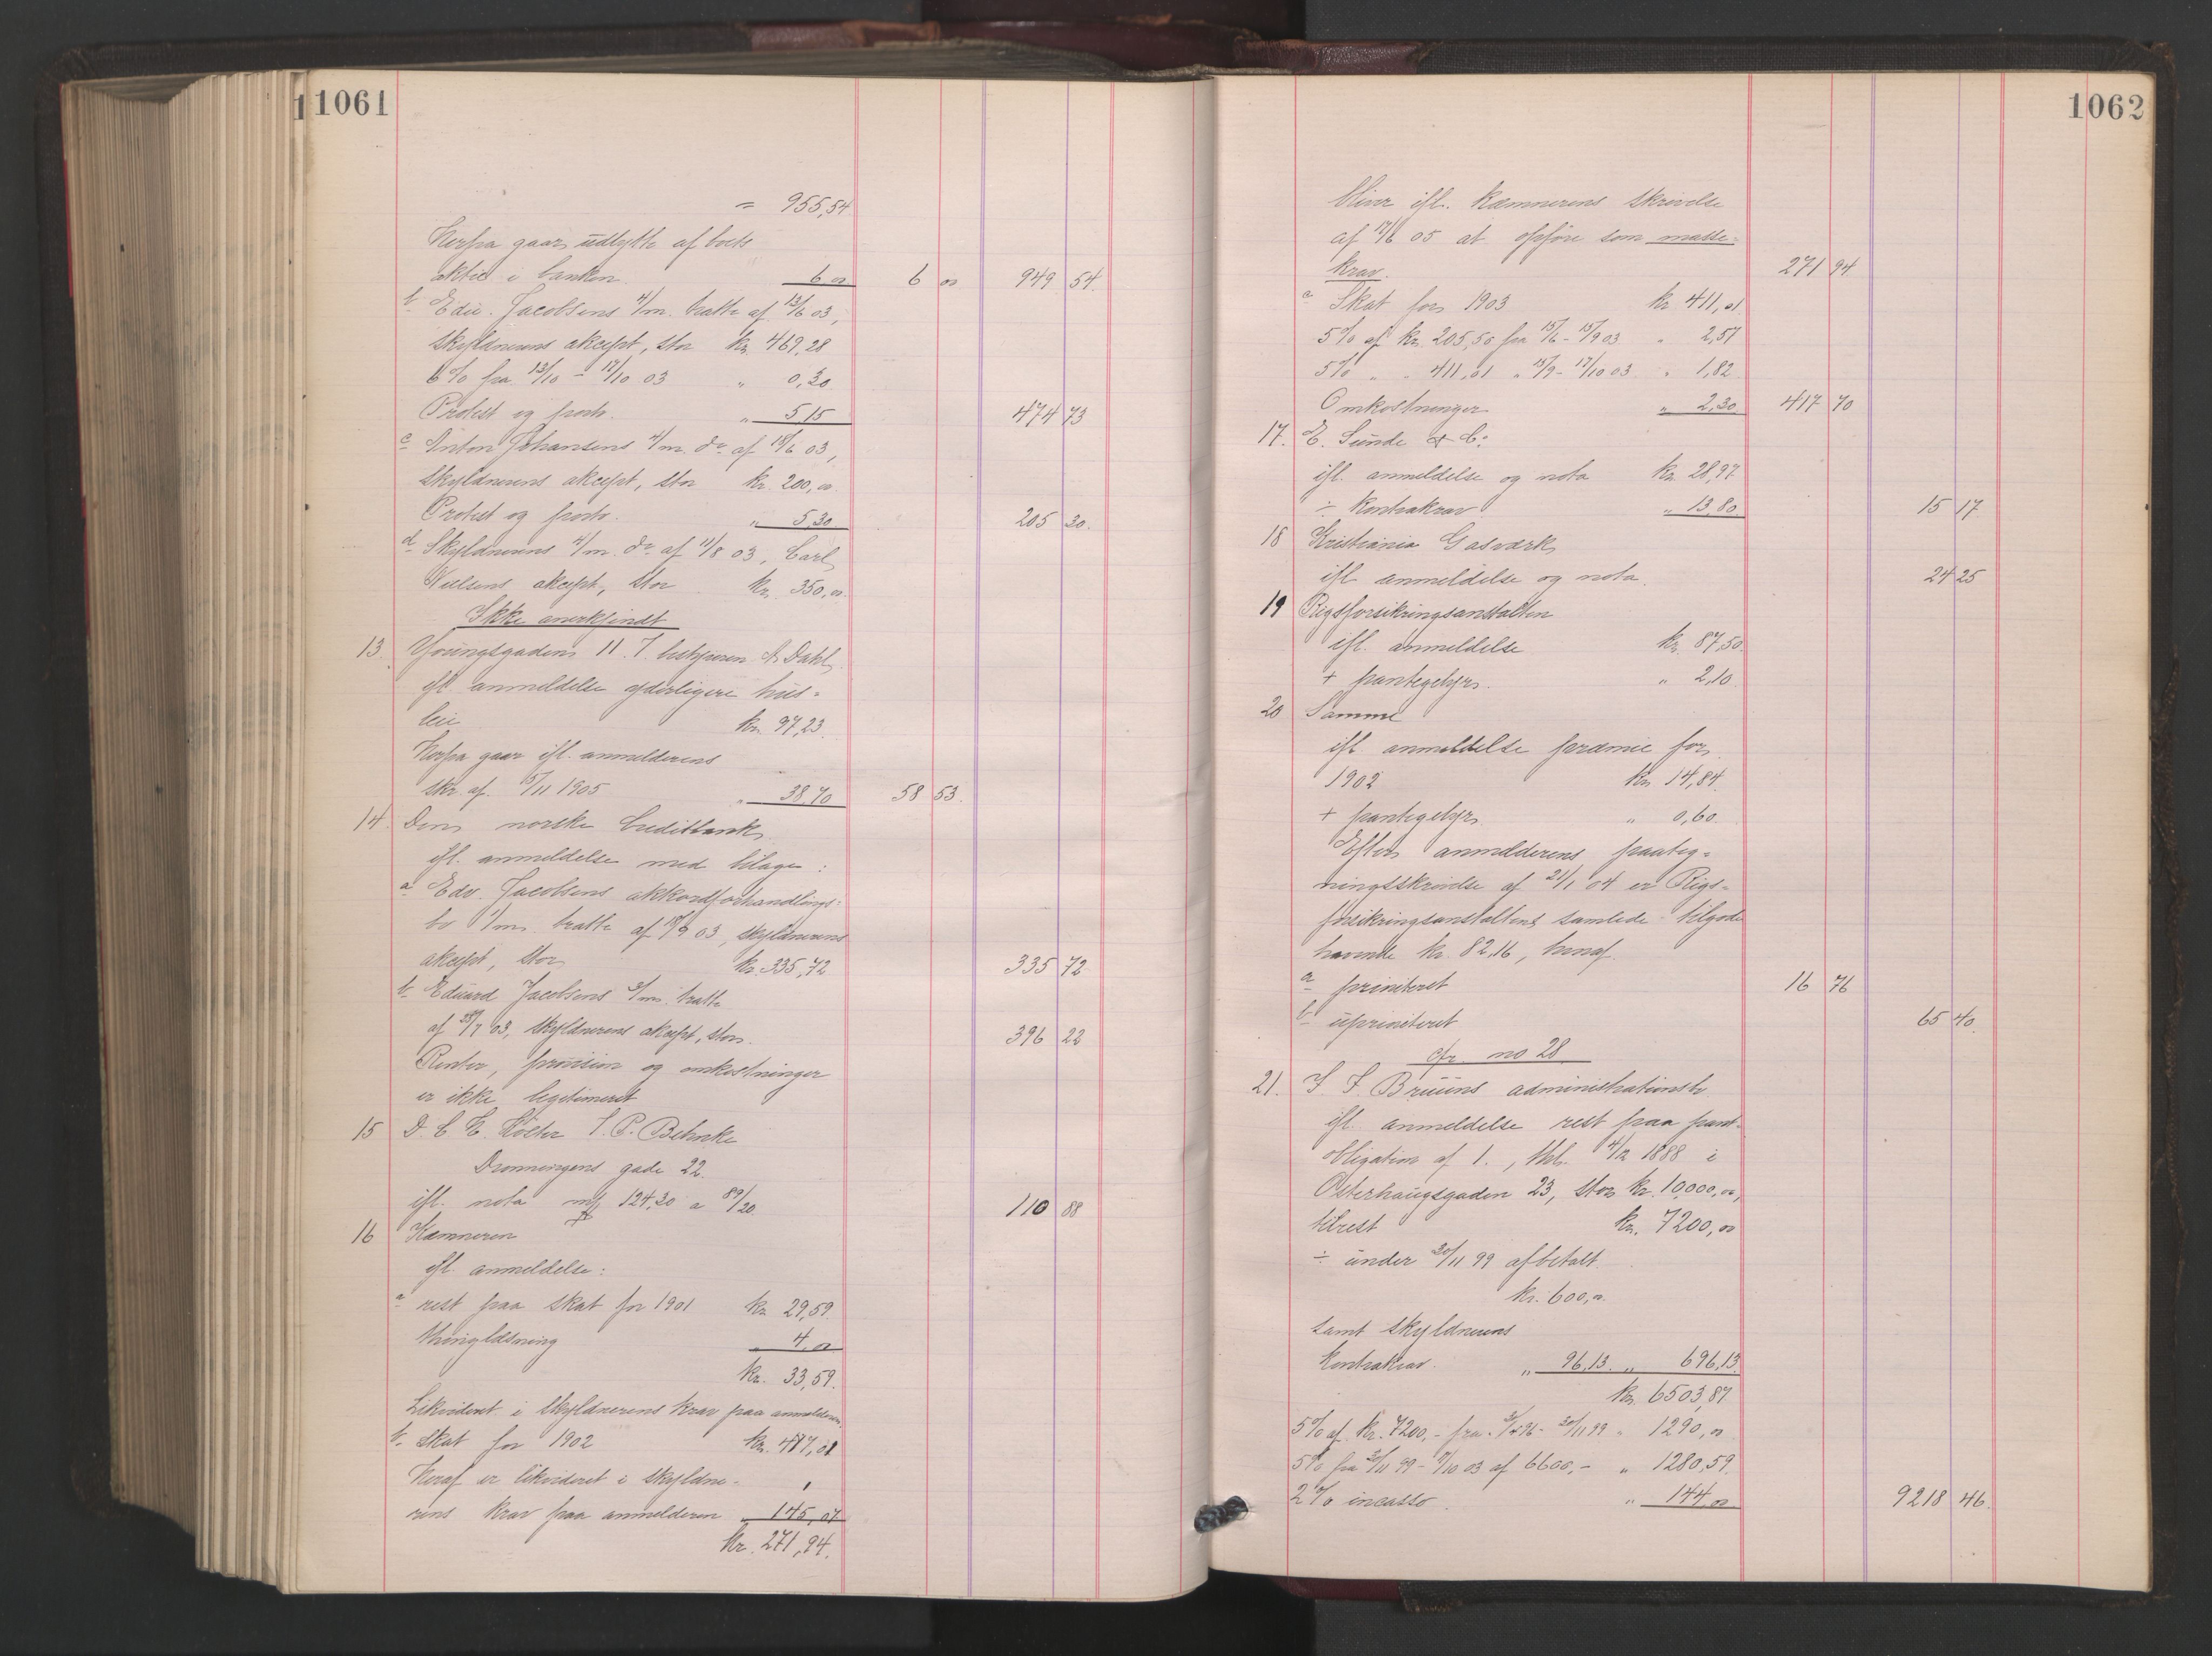 1061
= 955,54
Herfra gaar udbytte af boets
aktie i banken 6,00 6 00 949 54.
b. Edv. Jacobsens 4/m. tratte af 13/6 03,
skyldnerens aksept, stor kr. 469,28
6% fra 13/10 - 17/10 03 " 0,30
Protest og porto. " 5,15 474 73
c Anton Johansens 4/m. do. af 18/6 03,
skyldnerens aksept, stor kr. 200,00
Protest og porto. " 5,30 205 30.
d Skyldnerens 4/m. do. af 11/8 03, Carl
Nielsens aksept, stor kr. 350,00.
Ikke anerkjendt
13. Youngsgaden 11. v. bestyreren A. Dahl
ifl. anmeldelse yderligere hus-
leie kr. 97,23.
Herfra gaar ifl. anmelderens
skr. af 15/11 1905 " 38,70 58 53.
14. Den norske Creditbank
ifl. anmeldelse med bilage:
a Edv. Jacobsens akkordforhandlings-
bo 1/m. tratte af 18/9 03, skyldnerens
aksept, stor kr. 335,72 335 72
b. Eduard Jacobsens 3/m. tratte
af 28/7 03, skyldnerens aksept, stor. 396 22
Renter, provision og omkostninger
er ikke legitimeret
15 D. C. H. Költer v. P. Behnke
Dronningens gade 22.
ifl. nota 124,30 a 89/20. 110 88
16 Kæmneren
ifl. anmeldelse:
a rest paa skat for 1901 kr. 29,59.
thinglæsning 4,00
kr. 33,59.
Likvideret i skyldnerens krav paa anmelderen.
b. Skat for 1902 kr. 417,01
Heraf er likvideret i skyldne-
rens krav paa anmelderen " 145,07
kr. 271,94.
1062
bliver ifl. kæmnerens skrivelse
af 17/6 05 at opføre som masse-
krav. 271 94
c Skat for 1903 kr. 411,01
5% af kr. 205,50 fra 15/6 - 15/9 03 " 2,57
5% " " 411,01 " 15/9 - 17/10 03 " 1,82
Omkostninger " 2,30 417 70
17. E. Sunde & Co.
ifl. anmeldelse og nota kr. 28,97
÷ Kontrakrav " 13,80. 15 17
18 Kristiania Gasværk
ifl. anmeldelse og nota. 24 25
19 Rigsforsikringsanstalten
ifl. anmeldelse kr. 87,50.
+ pantegebyr. " 2,10.
20 Samme
ifl. anmeldelse præmie for
1902 kr. 14,84.
+ pantegebyr. " 0,60.
Efter anmelderens paateg-
ningsskrivelse af 21/1 04 er Rigs-
forsikringsanstaltens samlede tilgode
havende kr. 82,16, hvoraf.
a prioriteret 16 76
b uprioriteret 65 40.
cfr. no 28
21. Bruuns administrationsbo
ifl. anmeldelse rest paa pant-
obligation af 1., thl. 4/12 1888 i
Osterhaugsgaden 23, stor kr. 10,000,00,
tilrest kr. 7200,00
÷ under 30/11 99 afbetalt.
kr. 600,00.
samt skyldnerens
kontrakrav. " 96,13. " 696,13.
kr. 6503,87.
5% af kr. 7200,- fra 30/11 99 " 1290,00
5% fra 30/11 99 - 03 af 6600,- " 1280,59.
2% incasso. " 144,00. 9218 46.